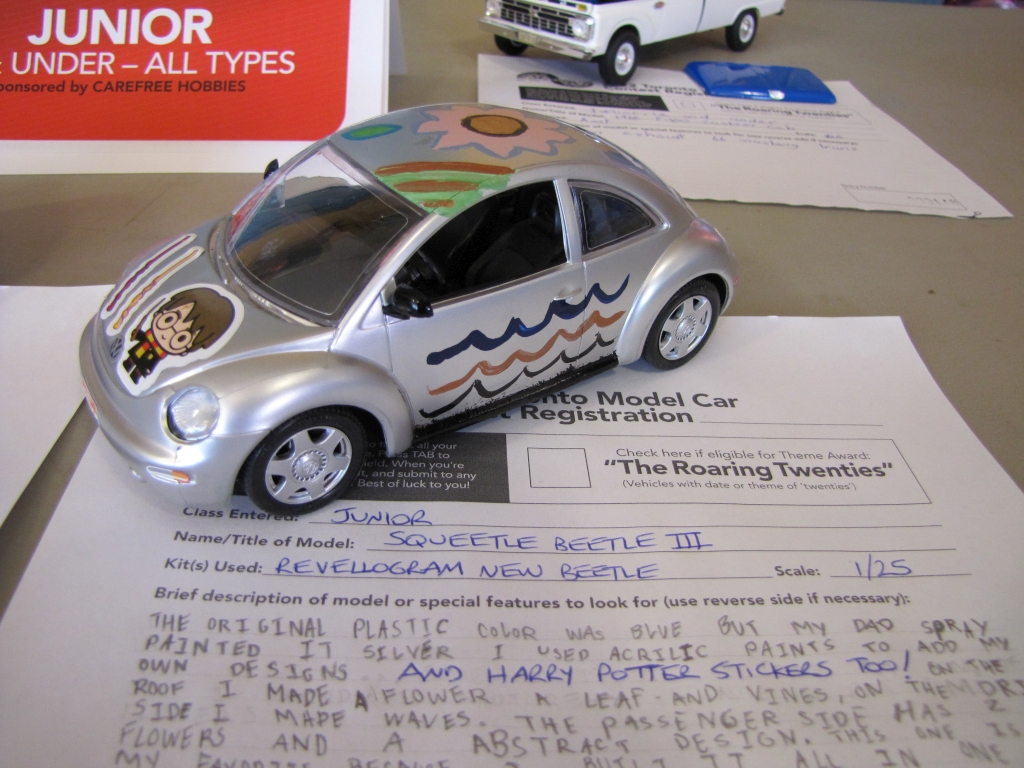 JUNIOR
UNDER – ALL TYPES
onsored by CAREFREE HOBBIES
"The Roaring Twenties"
onto Model Car
t Registration
all your
TAB to
ield. When you're
t, and submit to any
Best of luck to you!
Check here if eligible for Theme Award:
"The Roaring Twenties"
(Vehicles with date or theme of 'twenties')
Class Entered: JUNIOR
Name/Title of Model: SQUEETLE BEETLE III
Kit(s) Used: REVELLOGRAM NEW BEETLE Scale: 1/25
Brief description of model or special features to look for (use reverse side if necessary):
THE ORIGINAL PLASTIC COLOR WAS BLUE BUT MY DAD SPRAY
PAINTED IT SILVER I USED ACRILIC PAINTS TO ADD MY
OWN DESIGNS AND HARRY POTTER STICKERS TOO! ON THE
ROOF I MADE A FLOWER A LEAF AND VINES, ON THE DRI
SIDE I MADE WAVES. THE PASSENGER SIDE HAS 2
FLOWERS AND A ABSTRACT DESIGN. THIS ONE IS
MY FAVORITE BECAUSE I BUILT IT ALL IN ONE